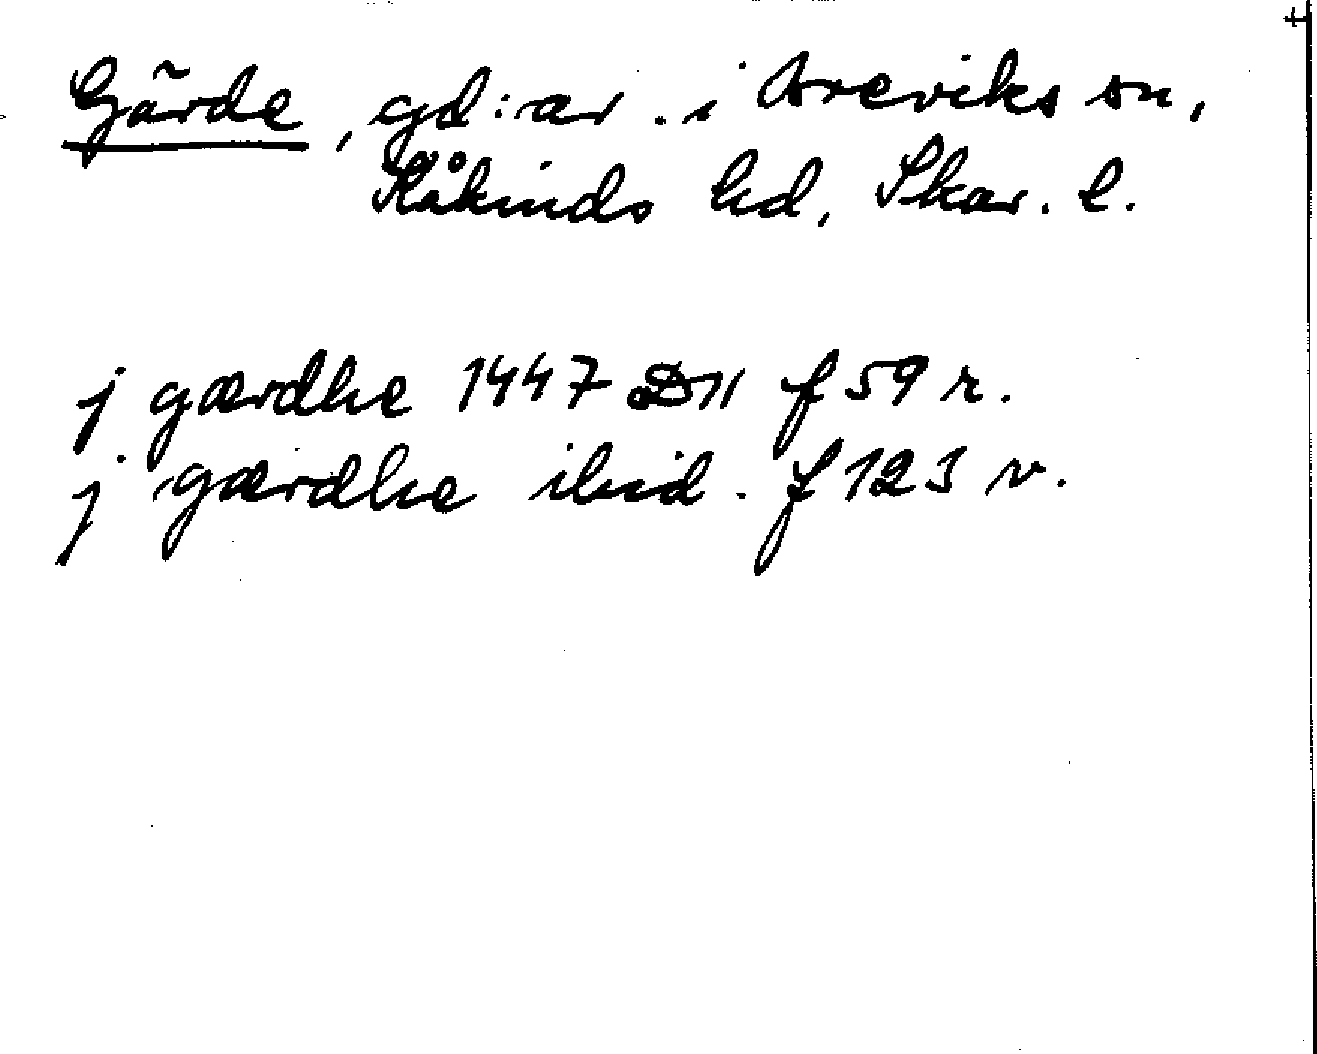 Gärde, gd:ar. i Breviks sn,
Kåkinds hd, Skar. l.
j gærdhe 1447 D11 f 59 r.
j gærdhe ibid. f 123 v.